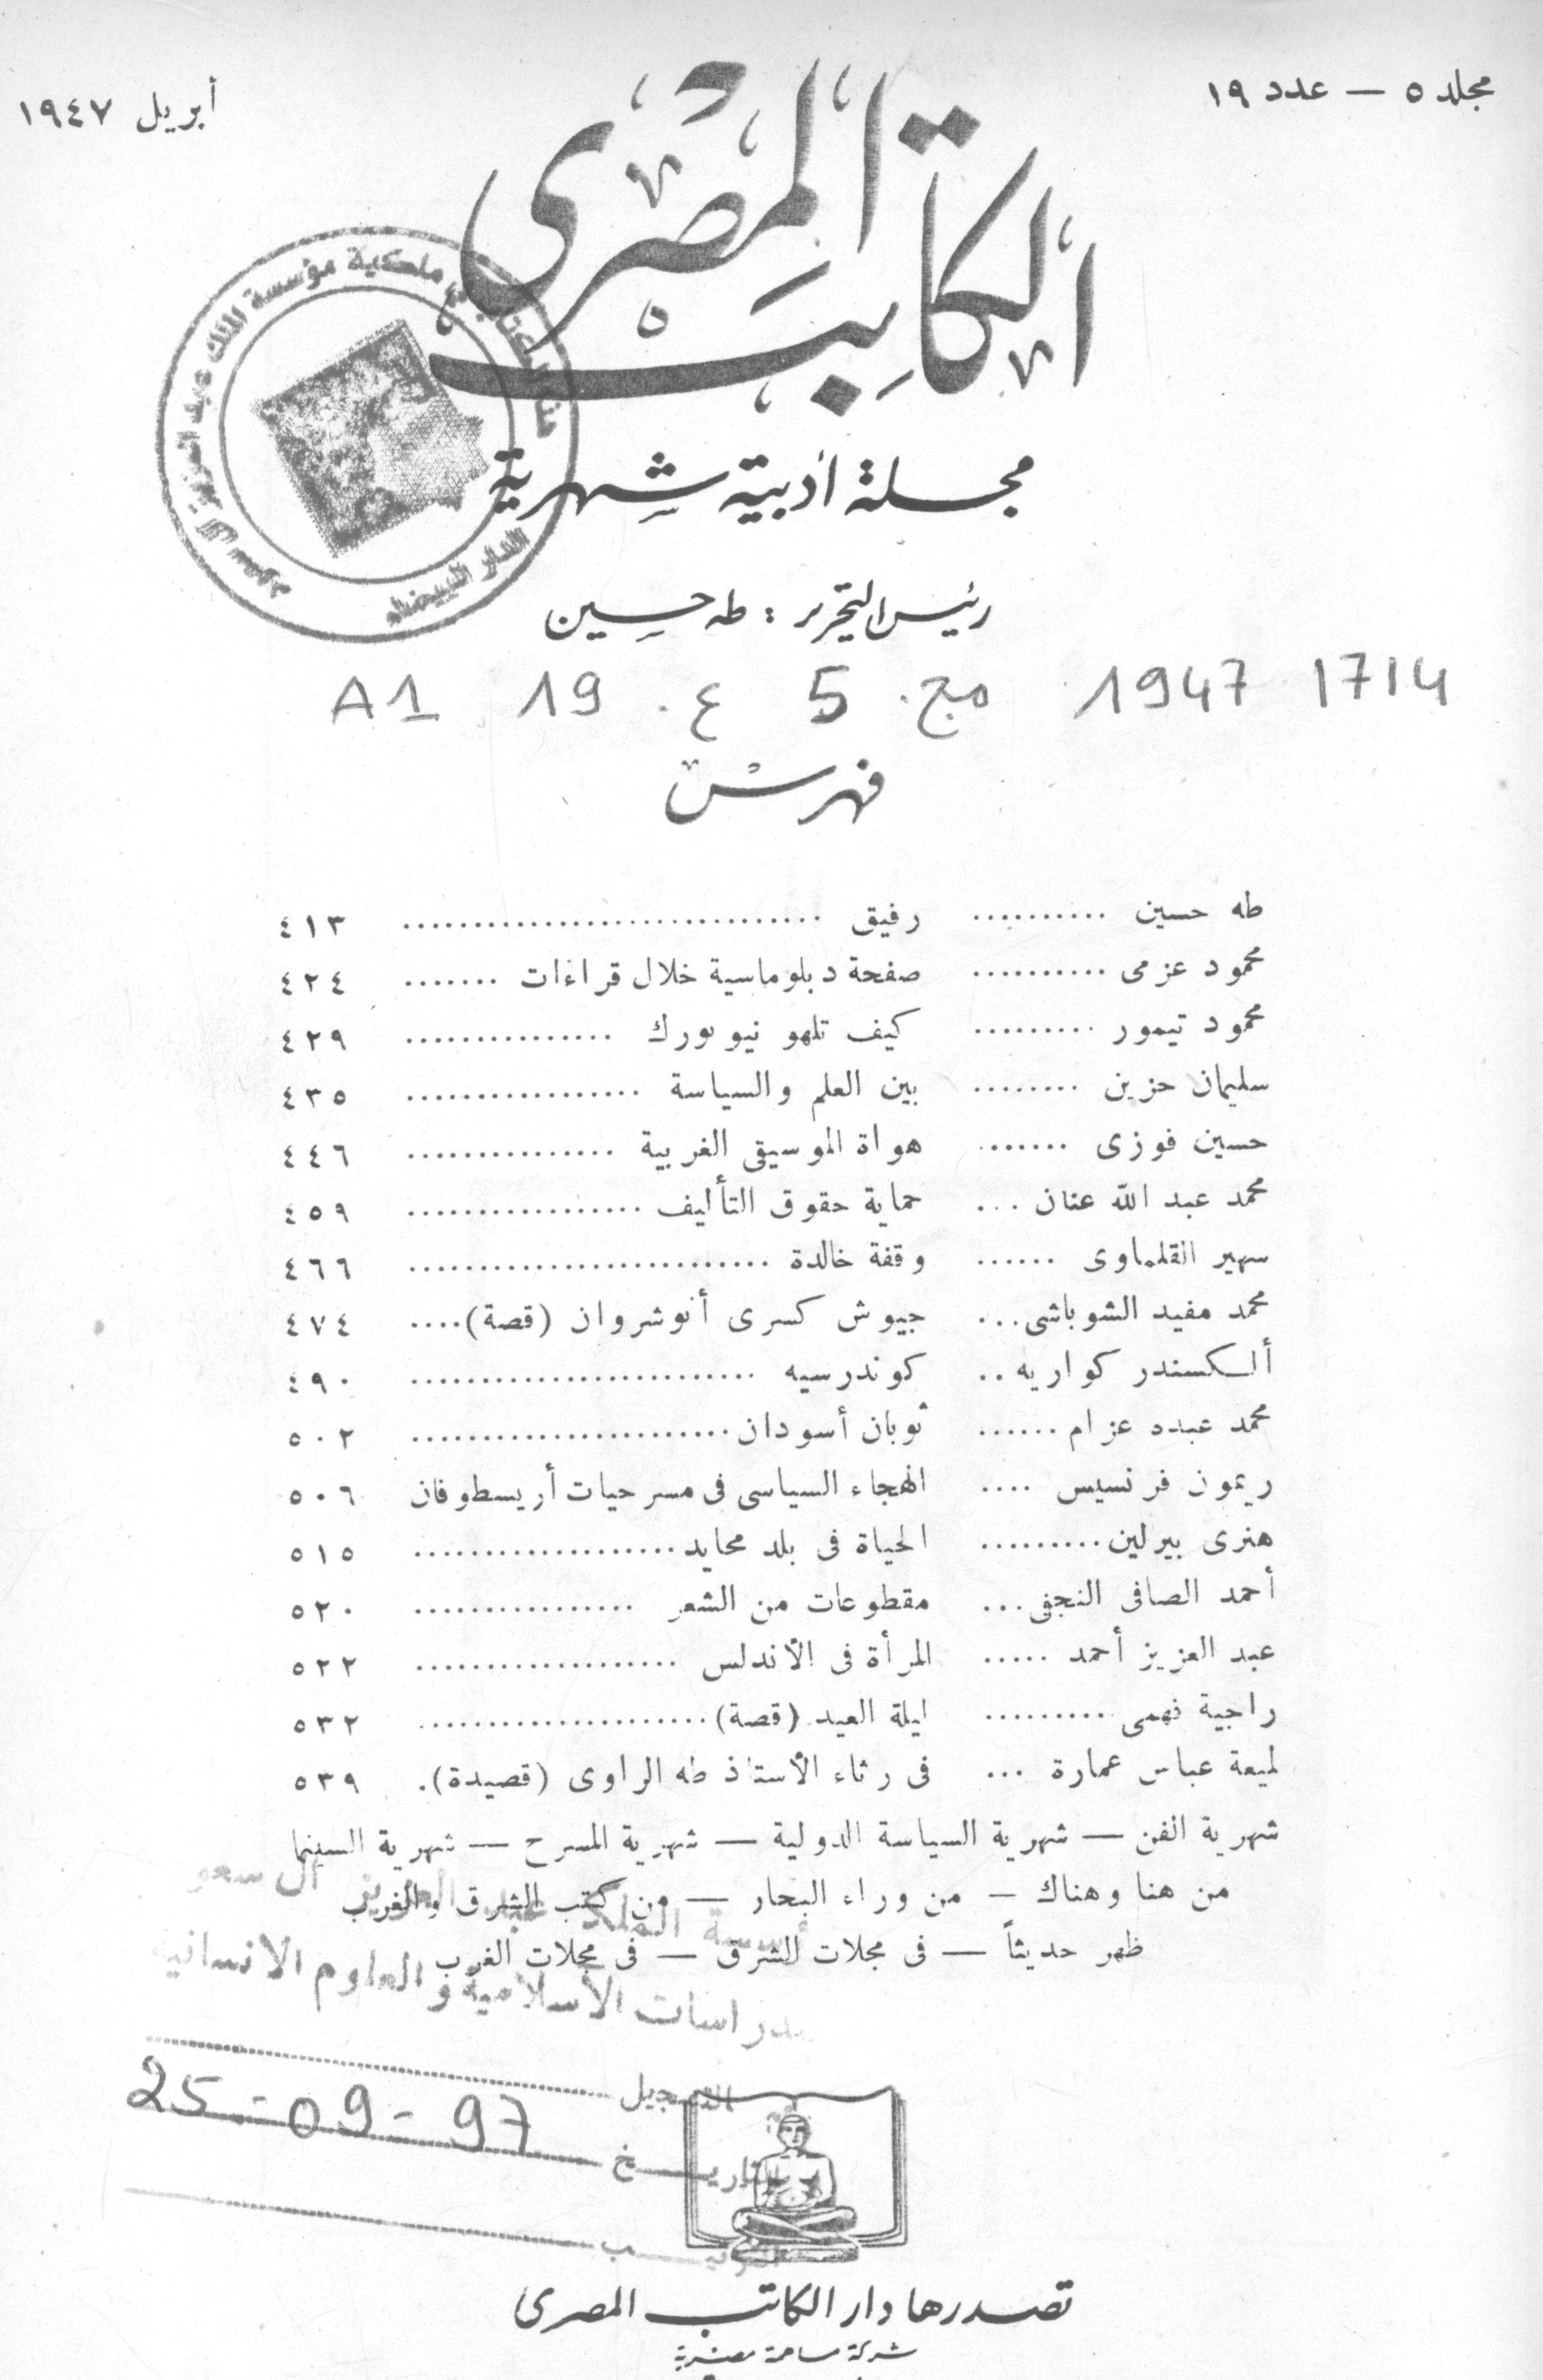 مجلد ٥ — عدد ١٩
أبريل ١٩٤٧
الكاتب المصرى
مجلة أدبية شهرية
رئيس التحرير : طه حسين
1714 1947 مج. 5 ع. 19 A1
فهرس
طه حسين .......... رفيق .............................. ٤١٣
محمود عزمى .......... صفحة دبلوماسية خلال قراءات ....... ٤٢٤
محمود تيمور ......... كيف تلهو نيويورك ............... ٤٢٩
سليمان حزين ........ بين العلم والسياسة ................. ٤٣٥
حسين فوزى ....... هواة الموسيقى الغربية ............... ٤٤٦
محمد عبد الله عنان ... حماية حقوق التأليف ................. ٤٥٩
سهير القلماوى ...... وقفة خالدة .......................... ٤٦٦
محمد مفيد الشوباشى ... جيوش كسرى أنوشروان (قصة) .... ٤٧٤
ألكسندر كواريه .. كوندرسيه ......................... ٤٩٠
محمد عبده عزام ...... ثوبان أسودان ....................... ٥٠٢
ريمون فرنسيس .... الهجاء السياسى فى مسرحيات أريسطوفان ٥٠٦
هنرى بيرلين .......... الحياة فى بلد محايد ................... ٥١٥
أحمد الصافى النجفى ... مقطوعات من الشعر ................ ٥٢٠
عبد العزيز أحمد ..... المرأة فى الأندلس ................... ٥٢٢
راجية فهمى ......... ليلة العيد (قصة) ..................... ٥٣٢
لميعة عباس عمارة ... فى رثاء الأستاذ طه الراوى (قصيدة) . ٥٣٩
شهرية الفن — شهرية السياسة الدولية — شهرية المسرح — شهرية السينما
من هنا وهناك — من وراء البحار — من كتب الشرق والغرب
ظهر حديثاً — فى مجلات الشرق — فى مجلات الغرب
مؤسسة الملك عبد العزيز آل سعود
الدار البيضاء
الملك عبد العزيز آل سعو
الاسلامية والعلوم الانسانية
التسجيل
التاريخ 25-09-97
تصدرها دار الكاتب المصرى
شركة مساهمة مصرية